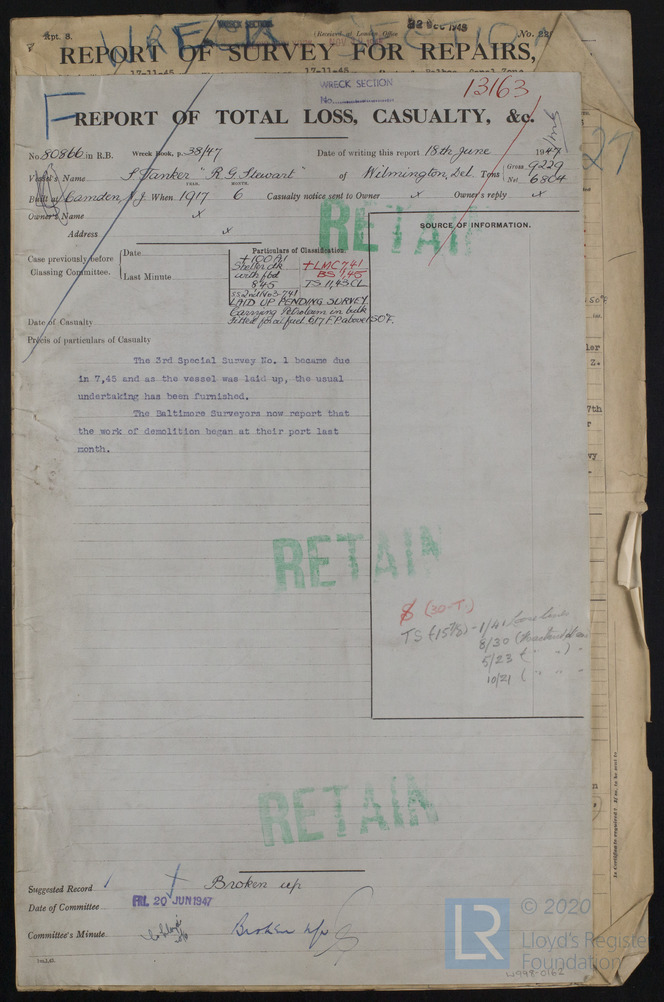 Rpt. 8.
WRECK SECTION
(Received at London Office
22 DEC 1948
No. 22
REPORT OF SURVEY FOR REPAIRS,
17-11-45
17-11-45
WRECK SECTION
No.
13163
F
REPORT OF TOTAL LOSS, CASUALTY, &c.
No. 80866 in R.B. Wreck Book, p. 38/47 Date of writing this report 18th June 1947
Vessel's Name S Tanker "R G Stewart" of Wilmington, Del. Tons Gross 9229
Net 6804
YEAR. MONTH.
Built at Camden, N.J. When 1917 6 Casualty notice sent to Owner x Owner's reply x
Owner's Name x
Address x
27
RETAIN
SOURCE OF INFORMATION.
Particulars of Classification.
Case previously before
Classing Committee.
Date
Last Minute
+100A1
Shelter dk
with fbd
8,45
+LMC 7,41
BS 7,45
TS 11,43 CL
SS 2nd No 3-7,41
LAID UP PENDING SURVEY
Carrying Petroleum in bulk
Fitted for oil fuel 6,17 F.P. above 150°F.
Date of Casualty
Précis of particulars of Casualty
The 3rd Special Survey No. 1 became due
in 7,45 and as the vessel was laid up, the usual
undertaking has been furnished.
The Baltimore Surveyors now report that
the work of demolition began at their port last
month.
RETAIN
(30-T.)
TS (15%) - 1/41
8/30
5/23 ( " " ) "
10/21 ( " " "
RETAIN
Suggested Record Broken up
Date of Committee FRI. 20 JUN 1947
Committee's Minute Broken up
LR
© 2020
Lloyd's Register
Foundation
W998-0162